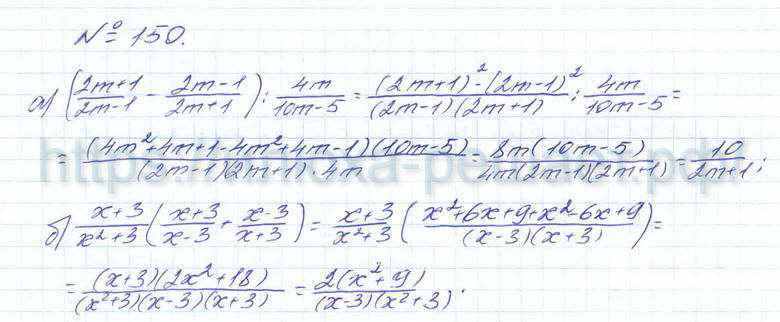 № 150.
а) ((2m+1)/(2m-1) - (2m-1)/(2m+1)) : 4m/(10m-5) = ((2m+1)²-(2m-1)²)/((2m-1)(2m+1)) : 4m/(10m-5) =
= ((4m²+4m+1-4m²+4m-1)(10m-5))/((2m-1)(2m+1)·4m) = 8m(10m-5)/(4m(2m-1)(2m+1)) = 10/(2m+1);
б) (x+3)/(x²+3) ((x+3)/(x-3) + (x-3)/(x+3)) = (x+3)/(x²+3) ((x²+6x+9+x²-6x+9)/((x-3)(x+3))) =
= ((x+3)(2x²+18))/((x²+3)(x-3)(x+3)) = 2(x²+9)/((x-3)(x²+3)).